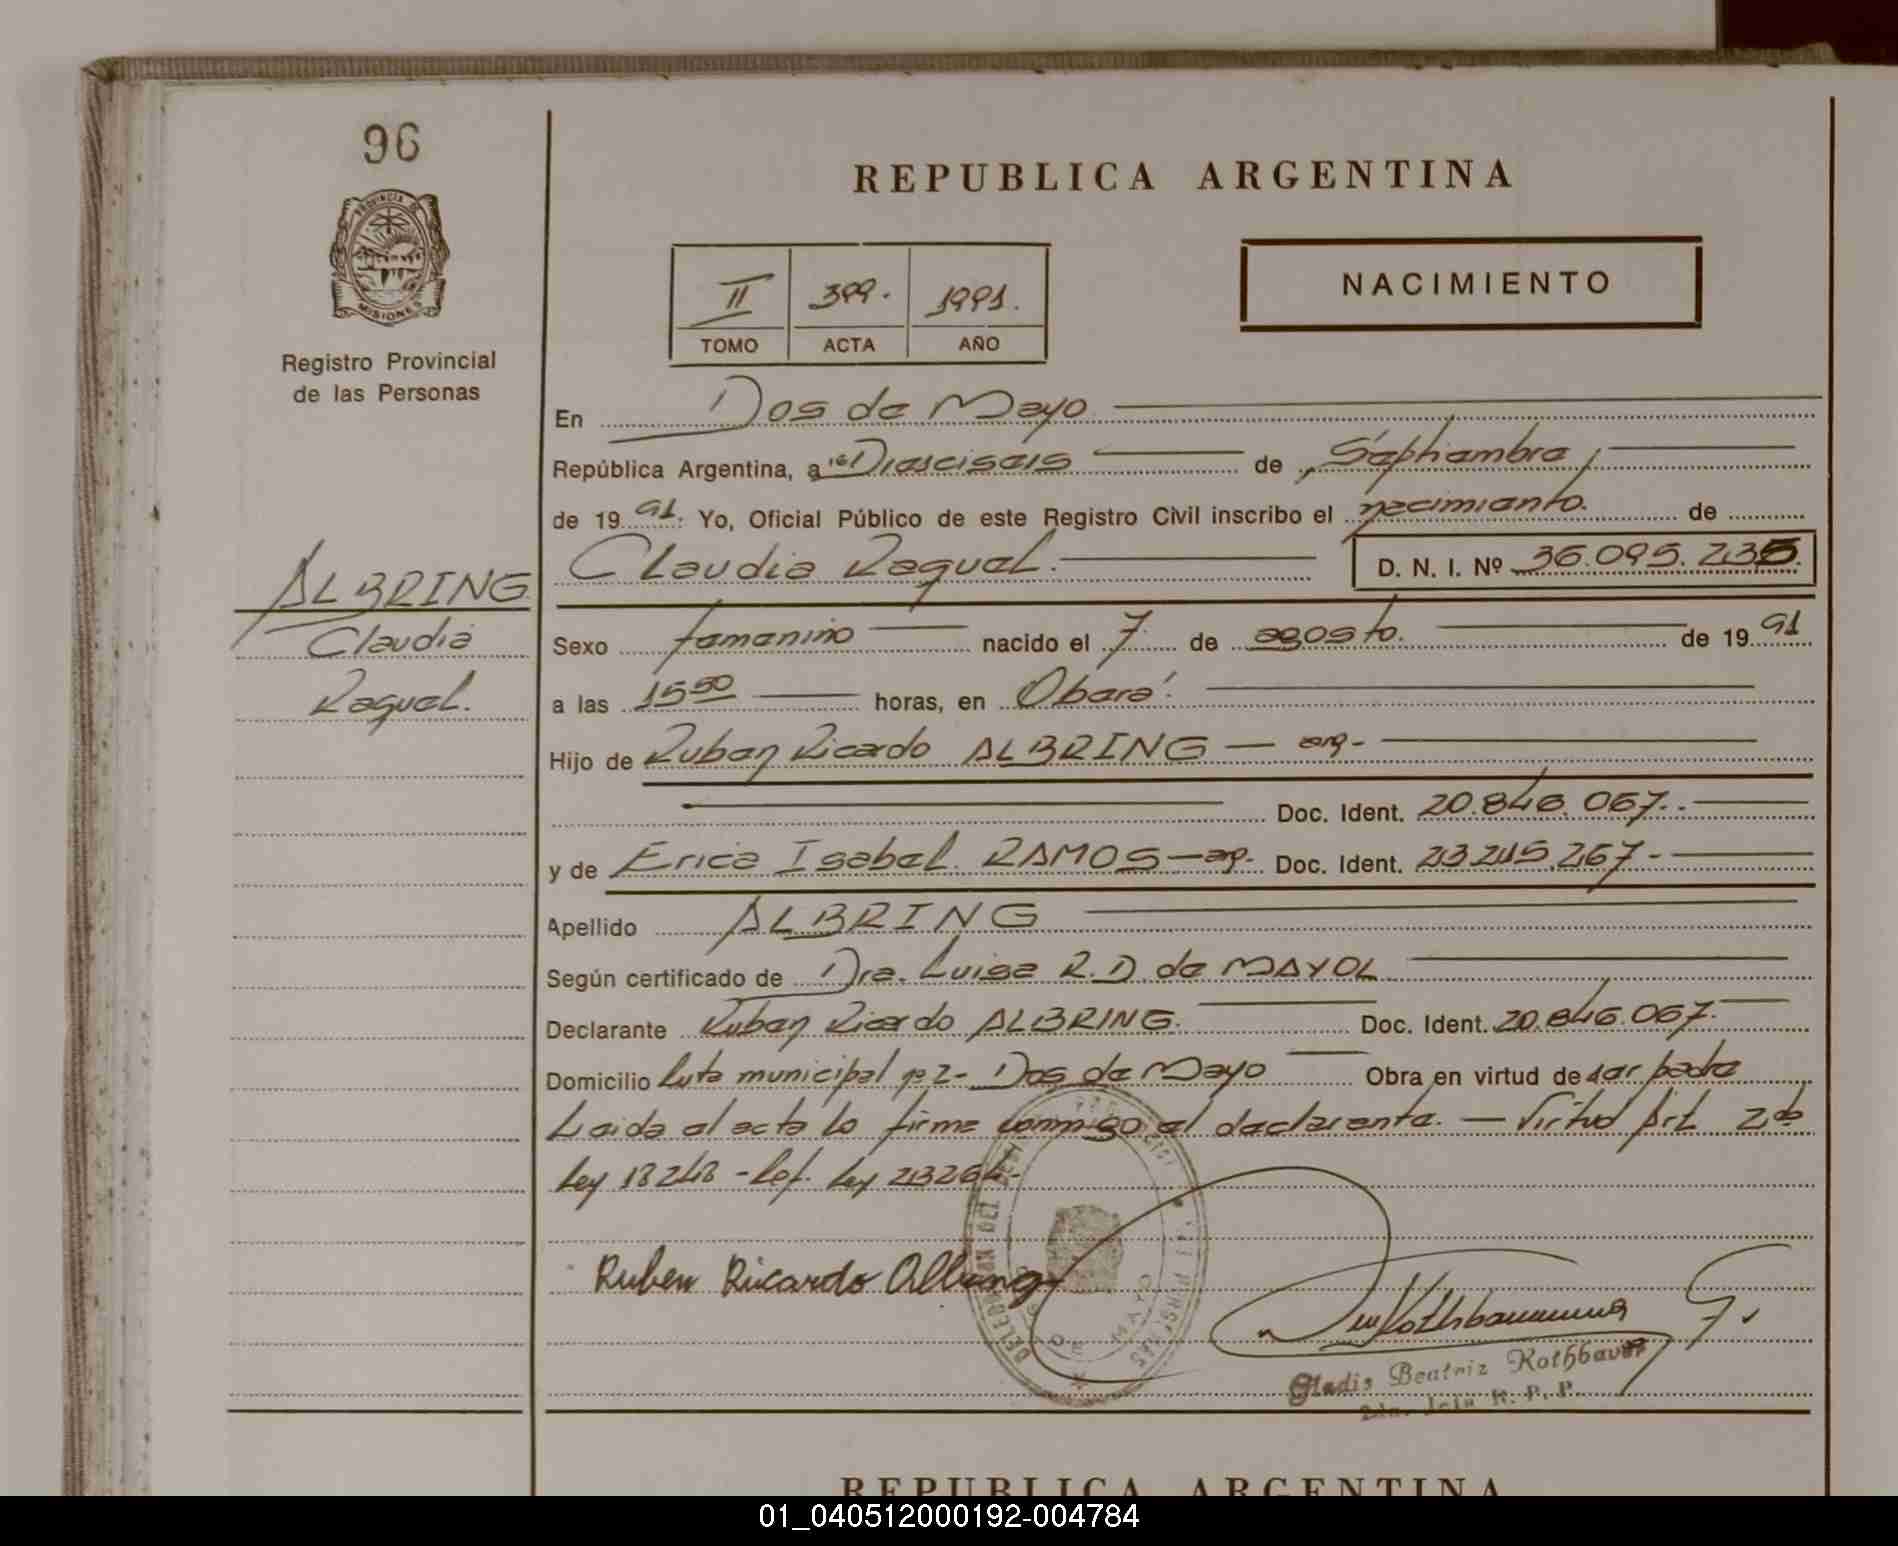 96
REPUBLICA ARGENTINA
PROVINCIA DE
MISIONES
Registro Provincial
de las Personas
II 399. 1991.
TOMO ACTA AÑO
NACIMIENTO
En Dos de Mayo
República Argentina, a Dieciseis de Septiembre
de 1991. Yo, Oficial Público de este Registro Civil inscribo el nacimiento. de
Claudia Raquel. D. N. I. Nº 36.095.235.
ALBRING
Claudia
Raquel.
Sexo femenino nacido el 7 de agosto. de 1991
a las 15 50 horas, en Oberá.
Hijo de Ruben Ricardo ALBRING — arg-
Doc. Ident. 20.846.067.
y de Erica Isabel RAMOS — arg. Doc. Ident. 23.245.267-
Apellido ALBRING
Según certificado de Dra. Luisa R. D. de MAYOL
Declarante Ruben Ricardo ALBRING. Doc. Ident. 20.846.067.
Domicilio Ruta municipal nº 2- Dos de Mayo Obra en virtud de ser padre
Leida el acta la firma conmigo el declarante. — Virtud Art. 2do
Ley 18248 - Ref. Ley 23264-
Ruben Ricardo Albring
DE MAYO
Gladis Beatriz Rothbauer
2da. Jefa R. P. P.
REPUBLICA ARGENTINA
01_040512000192-004784